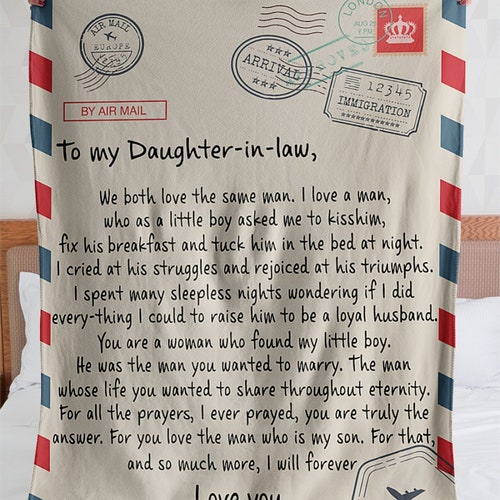 AIR MAIL
EUROPE
LONDON
AUG 25
9 PM
ARRIVAL
12345
IMMIGRATION
BY AIR MAIL
To my Daughter-in-law,
We both love the same man. I love a man,
who as a little boy asked me to kisshim,
fix his breakfast and tuck him in the bed at night.
I cried at his struggles and rejoiced at his triumphs.
I spent many sleepless nights wondering if I did
every-thing I could to raise him to be a loyal husband.
You are a woman who found my little boy.
He was the man you wanted to marry. The man
whose life you wanted to share throughout eternity.
For all the prayers, I ever prayed, you are truly the
answer. For you love the man who is my son. For that,
and so much more, I will forever
Love you